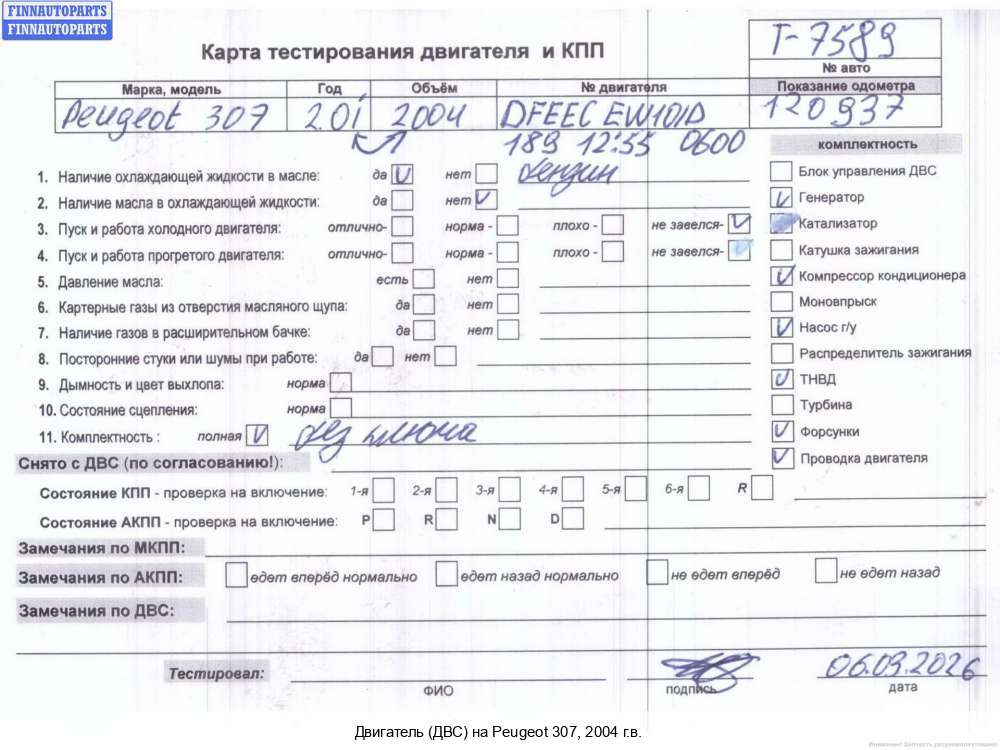 FINNAUTOPARTS
FINNAUTOPARTS
Карта тестирования двигателя и КПП
T-7589
№ авто
Марка, модель Год Объём № двигателя Показание одометра
Peugeot 307 2.0i 2004 DFEEC EW10/D 120937
189 12:55 0600
комплектность
1. Наличие охлаждающей жидкости в масле: да нет бензин
2. Наличие масла в охлаждающей жидкости: да нет
3. Пуск и работа холодного двигателя: отлично- норма - плохо - не завелся-
4. Пуск и работа прогретого двигателя: отлично- норма - плохо - не завелся-
5. Давление масла: есть нет
6. Картерные газы из отверстия масляного щупа: да нет
7. Наличие газов в расширительном бачке: да нет
8. Посторонние стуки или шумы при работе: да нет
9. Дымность и цвет выхлопа: норма
10. Состояние сцепления: норма
11. Комплектность : полная без ключа
Блок управления ДВС
Генератор
Катализатор
Катушка зажигания
Компрессор кондиционера
Моновпрыск
Насос г/у
Распределитель зажигания
ТНВД
Турбина
Форсунки
Проводка двигателя
Снято с ДВС (по согласованию!):
Состояние КПП - проверка на включение: 1-я 2-я 3-я 4-я 5-я 6-я R
Состояние АКПП - проверка на включение: P R N D
Замечания по МКПП:
Замечания по АКПП: едет вперёд нормально едет назад нормально не едет вперёд не едет назад
Замечания по ДВС:
Тестировал: 06.03.2026
ФИО подпись дата
Двигатель (ДВС) на Peugeot 307, 2004 г.в.
Внимание! Запчасть разукомплектована!